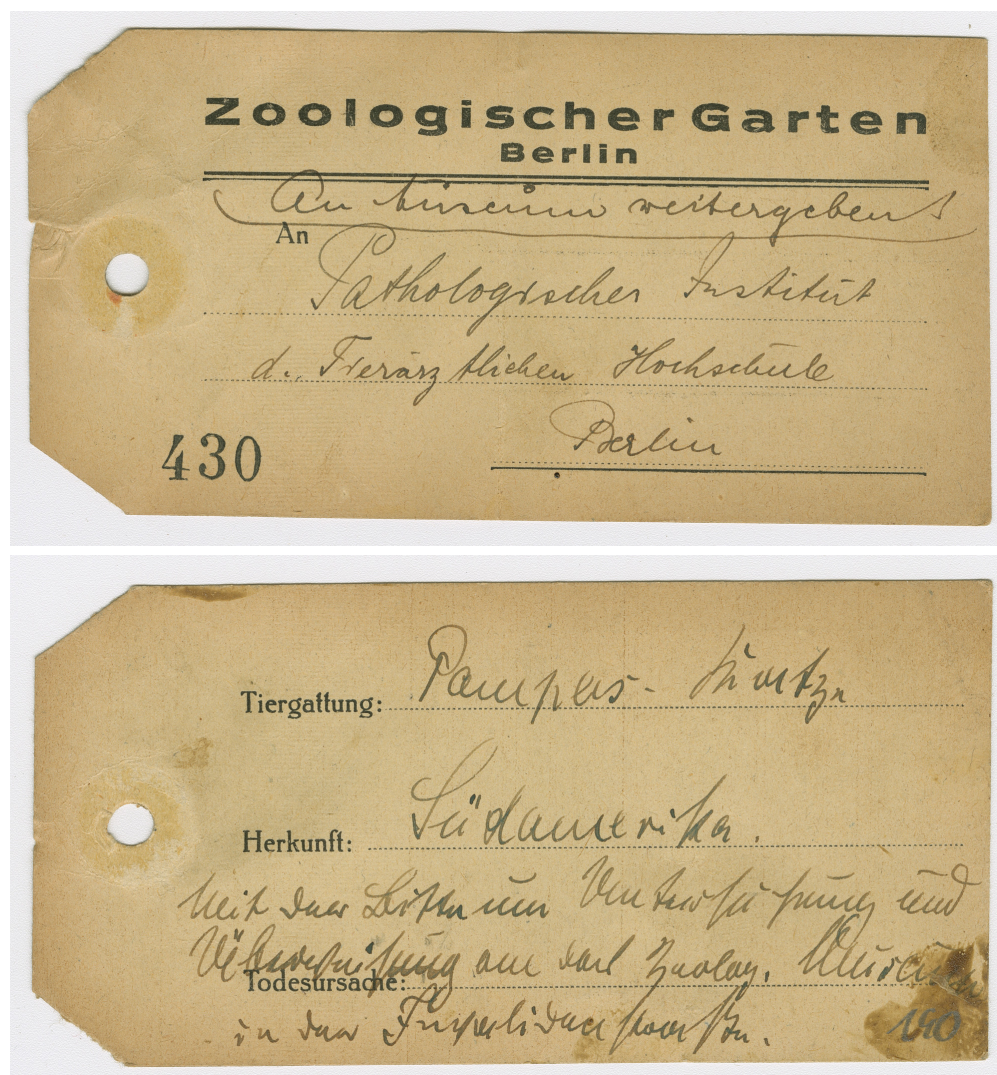 Zoologischer Garten
Berlin
An Museum weitergeben!
An
Pathologischer Institut
d. Tierärztlichen Hochschule
Berlin
430
Tiergattung: Pampas-Katze
Herkunft: Südamerika.
Mit der Bitte um Untersuchung und
Überweisung an das Zoolog. Museum
Todesursache:
in der Invalidenstraße.
190